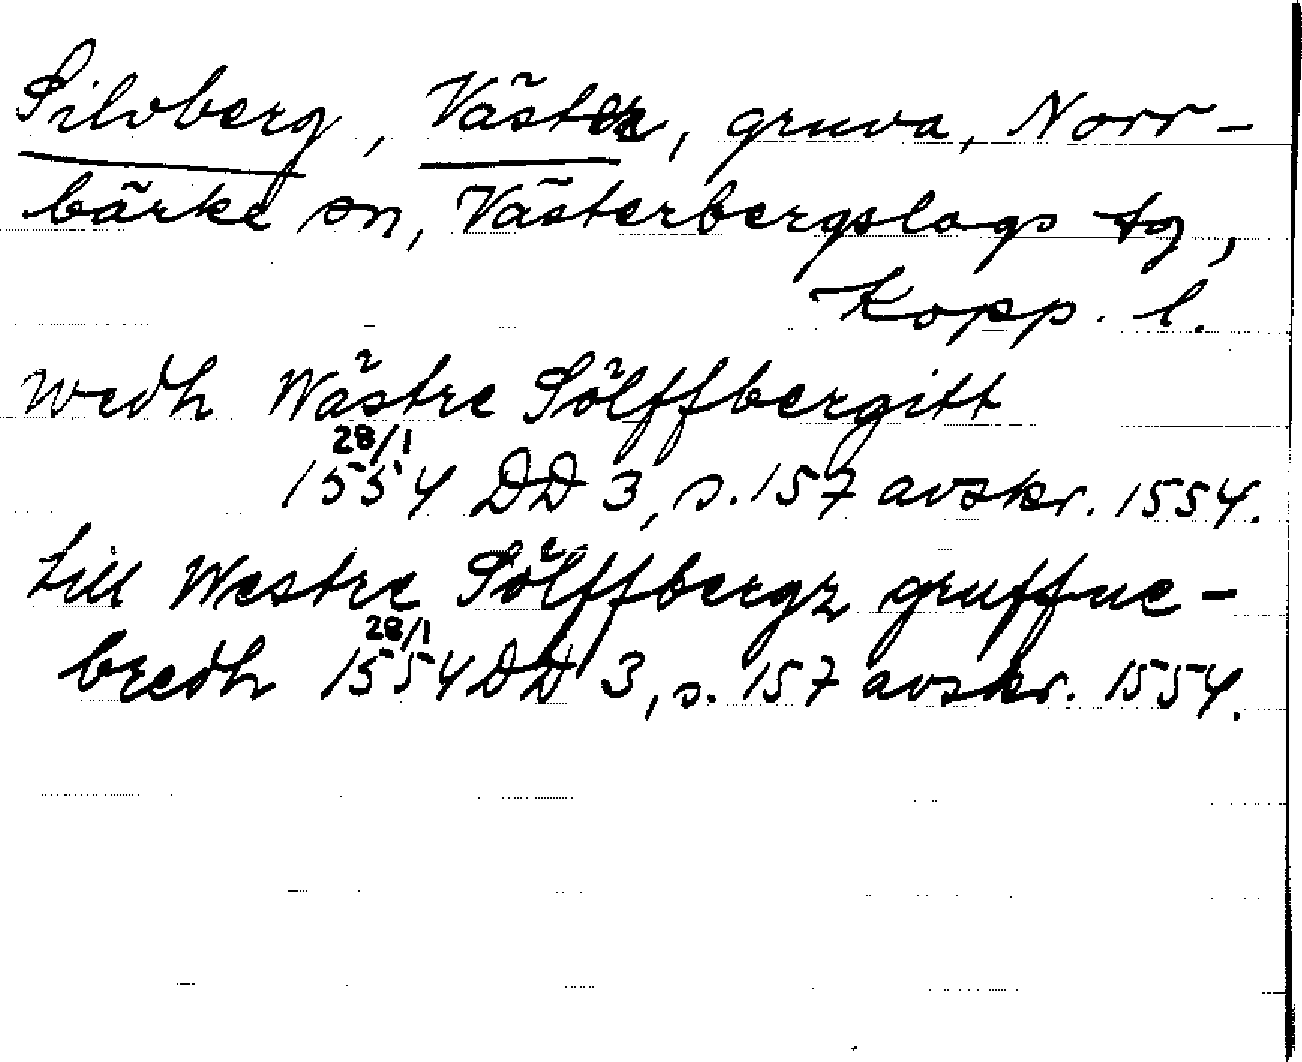 Silvberg, Väster, gruva, Norr-
bärke sn, Västerbergslags tg,
Kopp. l.
wedh Wästre Sölffbergitt
28/1
1554 DD 3, s. 157 avskr. 1554.
till Westre Sölffbergz gruffue-
bredh 28/1 1554 DD 3, s. 157 avskr. 1554.